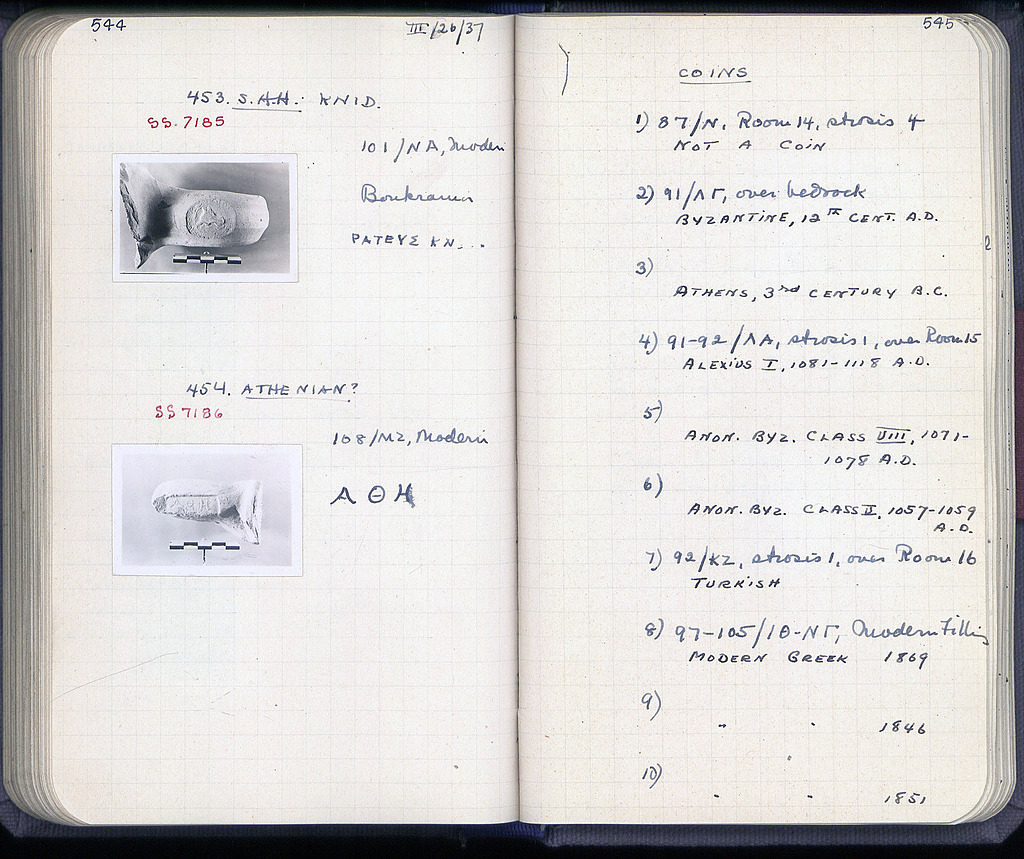 544
III/26/37
453. S.A.H.: KNID.
SS. 7185
101/NA, Modern
Boukranion
PATEYΣ KN...
454. ATHENIAN?
SS 7186
108/MZ, Modern
A Θ H
545
COINS
1) 87/N, Room 14, strosis 4
NOT A COIN
2) 91/ΛΓ, over bedrock
BYZANTINE, 12TH CENT. A.D.
2
3)
ATHENS, 3rd CENTURY B.C.
4) 91-92/ΛA, strosis 1, over Room 15
ALEXIUS I, 1081-1118 A.D.
5)
ANON. BYZ. CLASS VIII, 1071-
1078 A.D.
6)
ANON. BYZ. CLASS II, 1057-1059
A.D.
7) 92/KZ, strosis 1, over Room 16
TURKISH
8) 97-105/IΘ-NΓ, Modern Filling
MODERN GREEK 1869
9)
" " 1846
10)
" " 1851